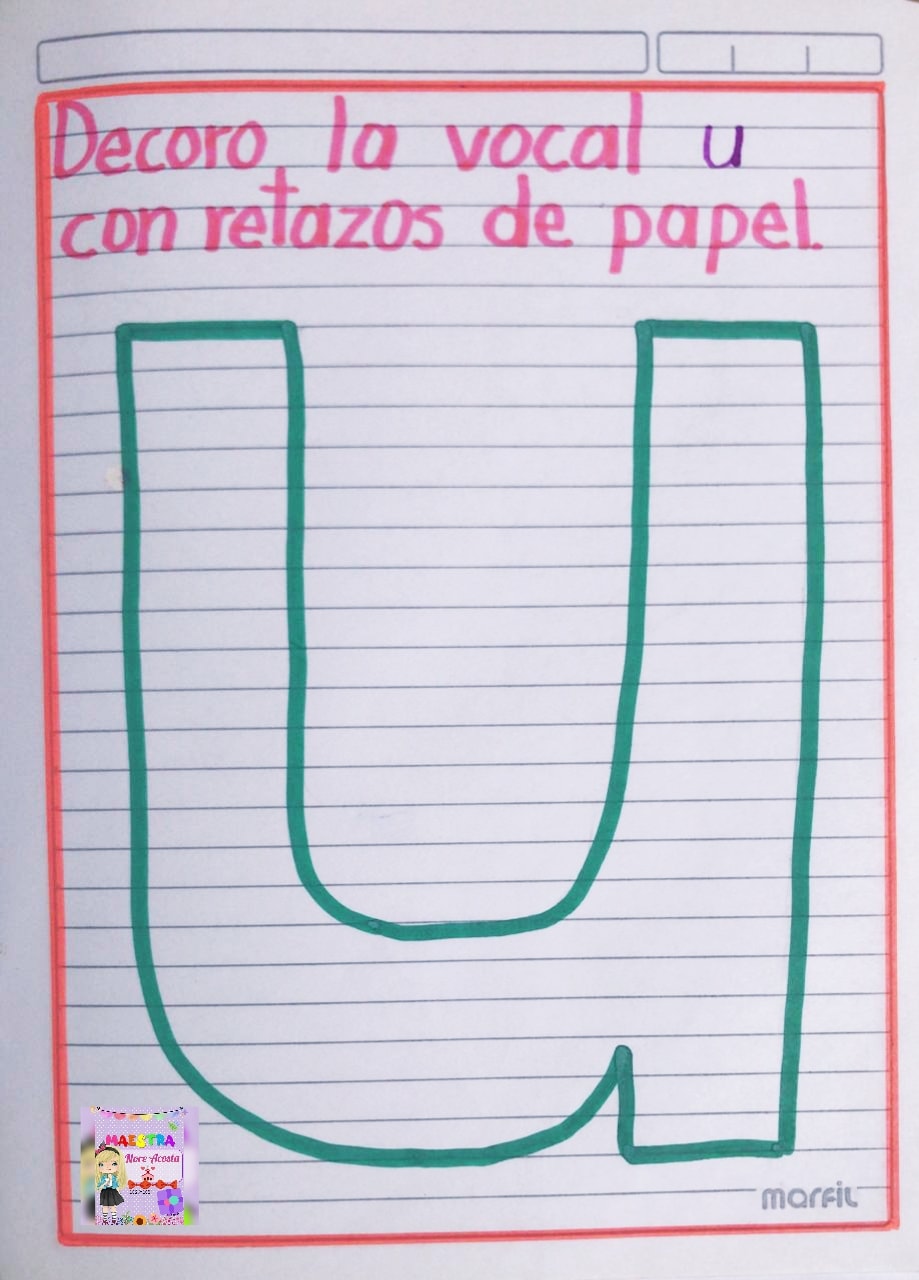 Decoro la vocal u
con retazos de papel.
MAESTRA
Nore Acosta
marfil